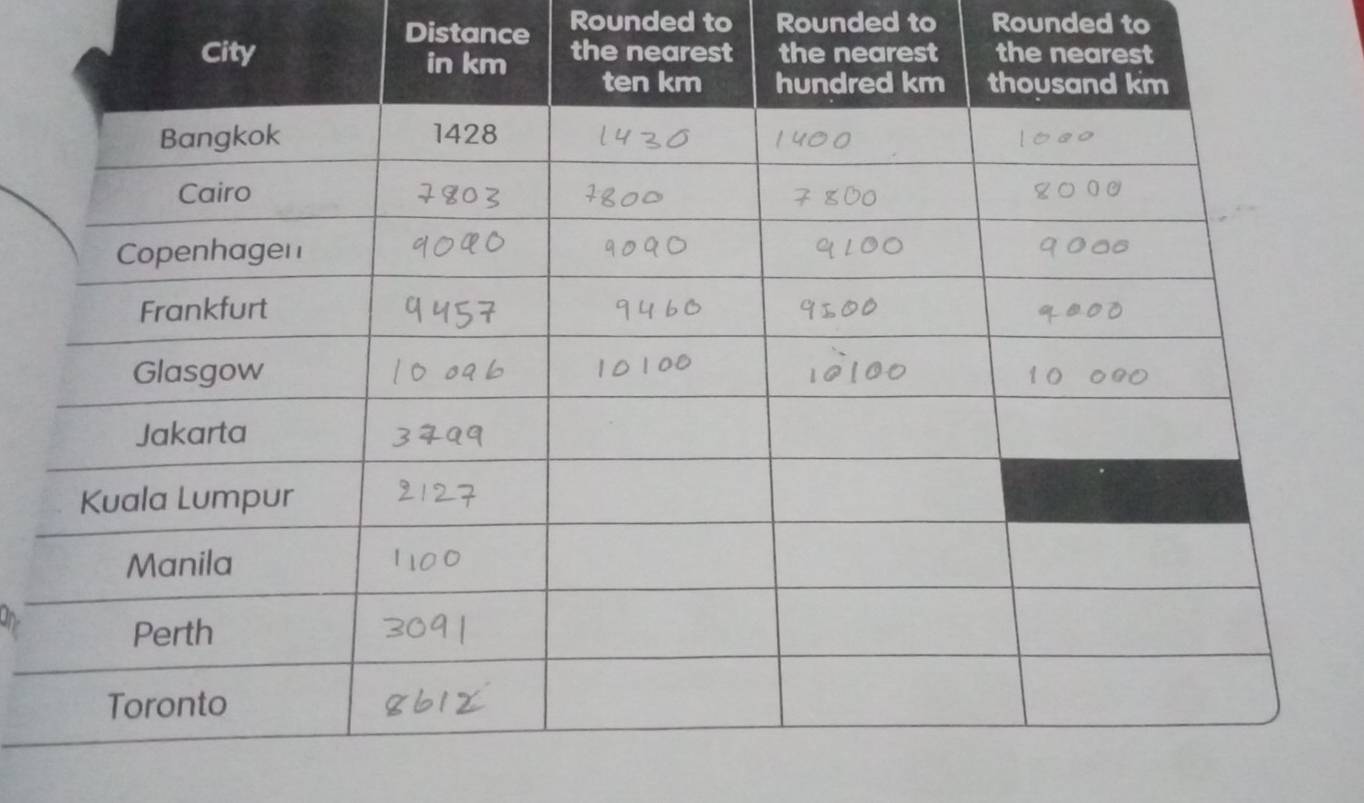 City Distance in km Rounded to the nearest ten km Rounded to the nearest hundred km Rounded to the nearest thousand km
Bangkok 1428 1430 1400 1000
Cairo 7803 7800 7800 8000
Copenhagen 9090 9090 9100 9000
Frankfurt 9457 9460 9500 9000
Glasgow 10 096 10100 10100 10 000
Jakarta 3799
Kuala Lumpur 2127
Manila 1100
Perth 3091
Toronto 8612